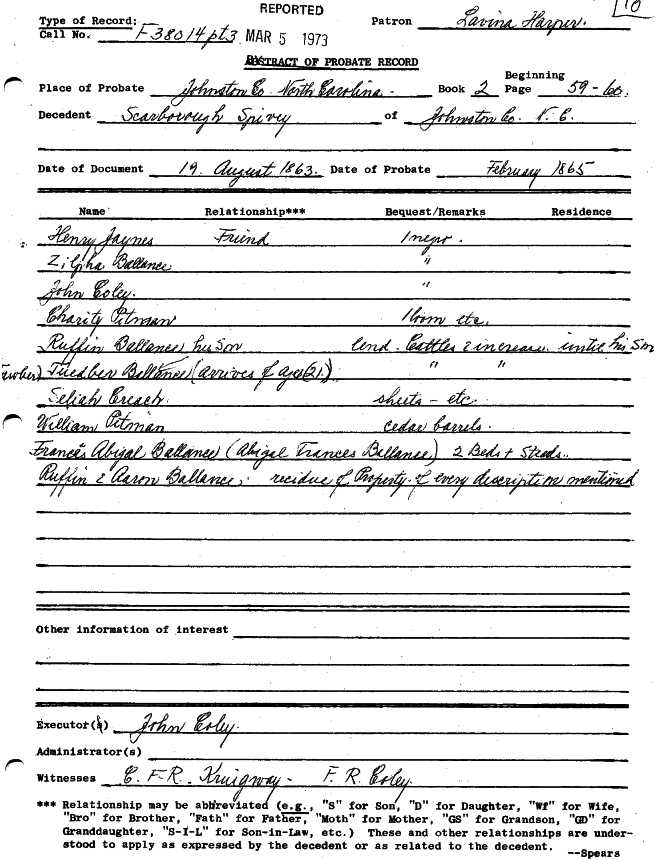 REPORTED
10
Type of Record: Patron Lavina Harper.
Call No. F38014pt3 MAR 5 1973
ABSTRACT OF PROBATE RECORD
Beginning
Place of Probate Johnston Co. North Carolina. Book 2 Page 59-60.
Decedent Scarborough Spivey of Johnston Co. N.C.
Date of Document 19. August 1863. Date of Probate February 1865
Name Relationship*** Bequest/Remarks Residence
Henry Jaynes Friend 1 negro.
Zilpha Ballance "
John Coley. "
Charity Pitman 1 loom etc.
Ruffin Ballance, his Son lend. Cattles & increase until his Son
Ballance (arrives of age (21) " "
Seliah Creach sheets - etc.
William Pitman cedar barrels.
Frances Abigal Ballance (Abigal Frances Ballance) 2 Beds + Steads..
Ruffin & Aaron Ballance. recidue of Property. of every discription mentioned
Other information of interest
Executor(s) John Coley.
Administrator(s)
Witnesses C. F. R. F. R. Coley.
*** Relationship may be abbreviated (e.g., "S" for Son, "D" for Daughter, "Wf" for Wife,
"Bro" for Brother, "Fath" for Father, "Moth" for Mother, "GS" for Grandson, "GD" for
Granddaughter, "S-I-L" for Son-in-Law, etc.) These and other relationships are under-
stood to apply as expressed by the decedent or as related to the decedent.
--Spears